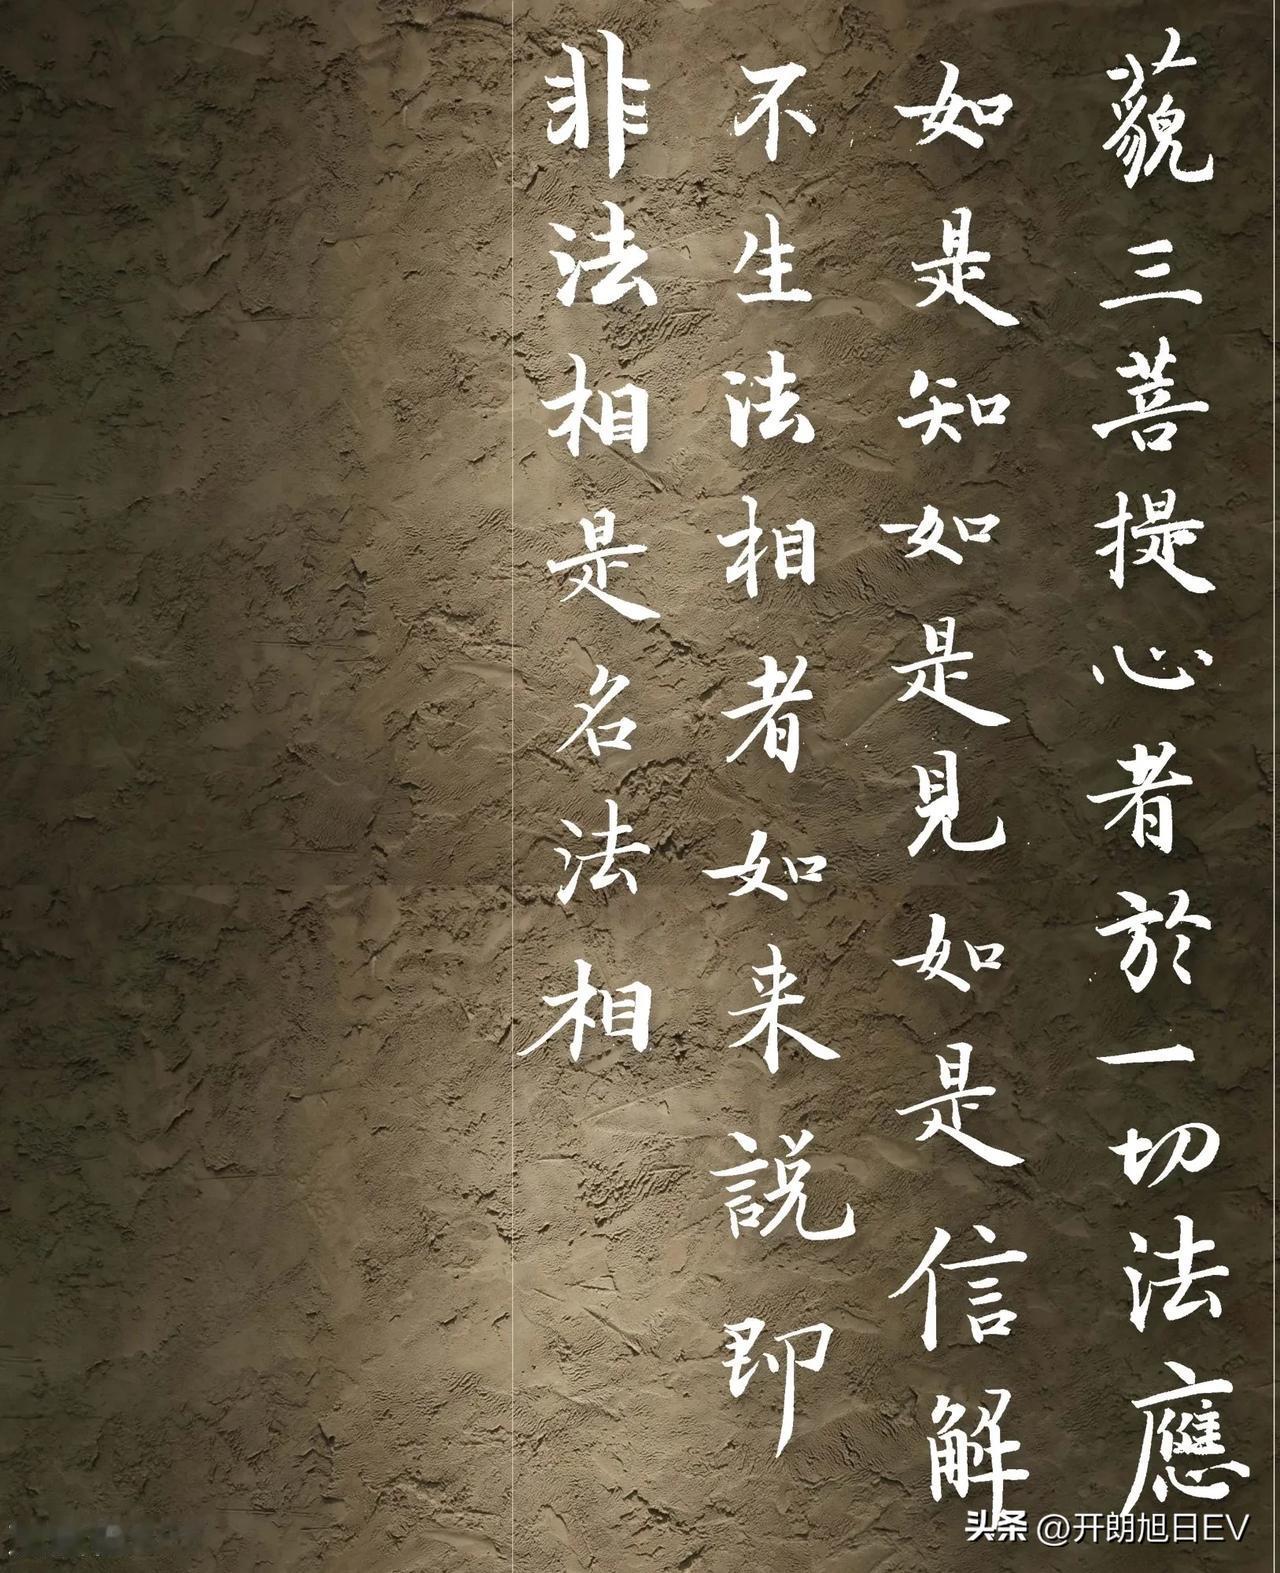 藐三菩提心者於一切法應
如是知如是見如是信解
不生法相者如来說即
非法相是名法相
头条 @开朗旭日EV